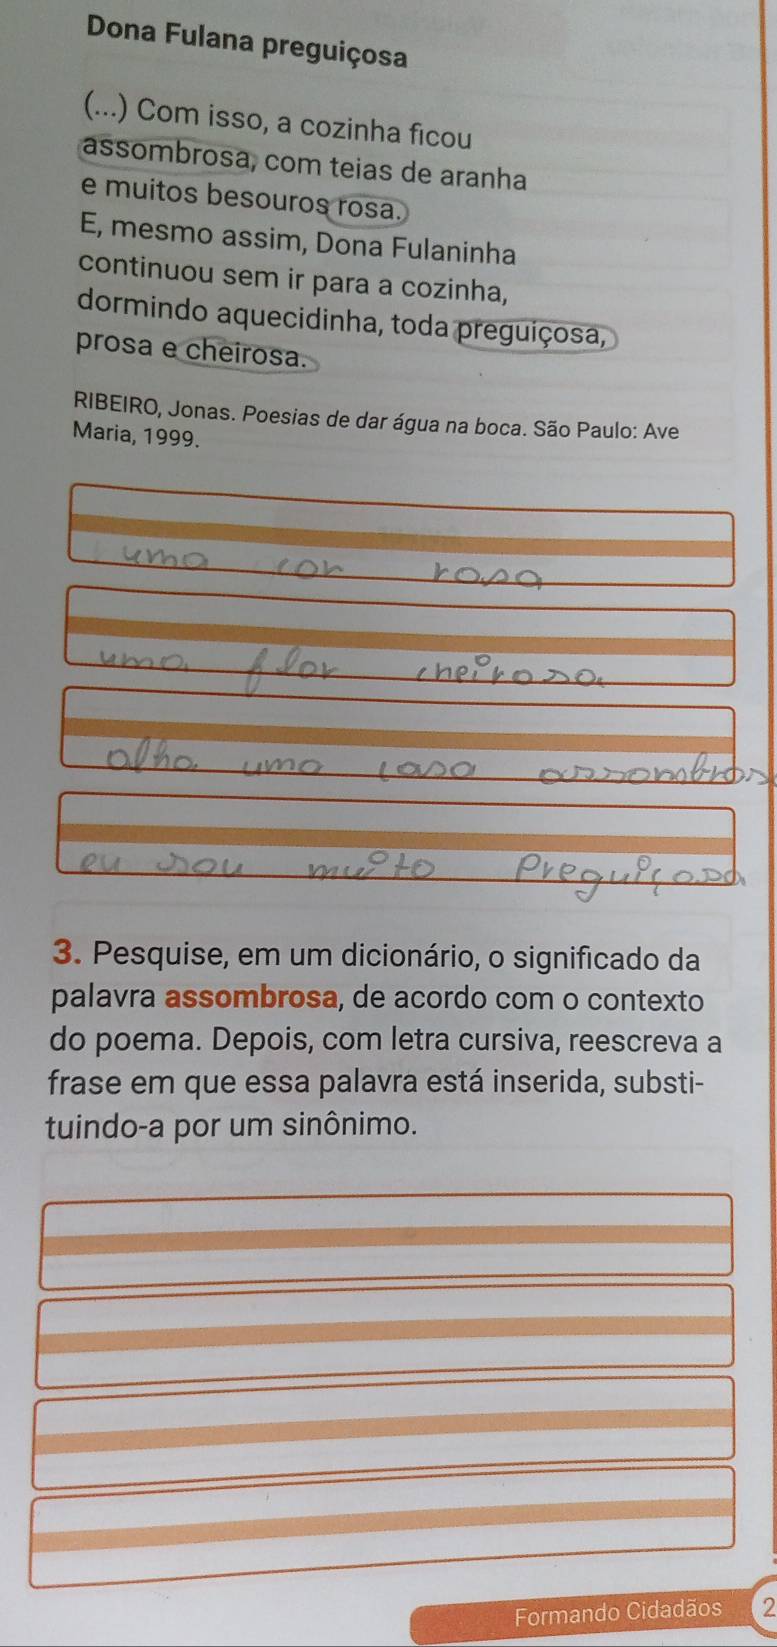 Dona Fulana preguiçosa
(...) Com isso, a cozinha ficou
assombrosa, com teias de aranha
e muitos besouros rosa.
E, mesmo assim, Dona Fulaninha
continuou sem ir para a cozinha,
dormindo aquecidinha, toda preguiçosa,
prosa e cheirosa.
RIBEIRO, Jonas. Poesias de dar água na boca. São Paulo: Ave
Maria, 1999.
uma cor rosa
uma flor cheirosa
olha uma casa assombros
eu sou muito preguiçosa
3. Pesquise, em um dicionário, o significado da
palavra assombrosa, de acordo com o contexto
do poema. Depois, com letra cursiva, reescreva a
frase em que essa palavra está inserida, substi-
tuindo-a por um sinônimo.
Formando Cidadãos 2